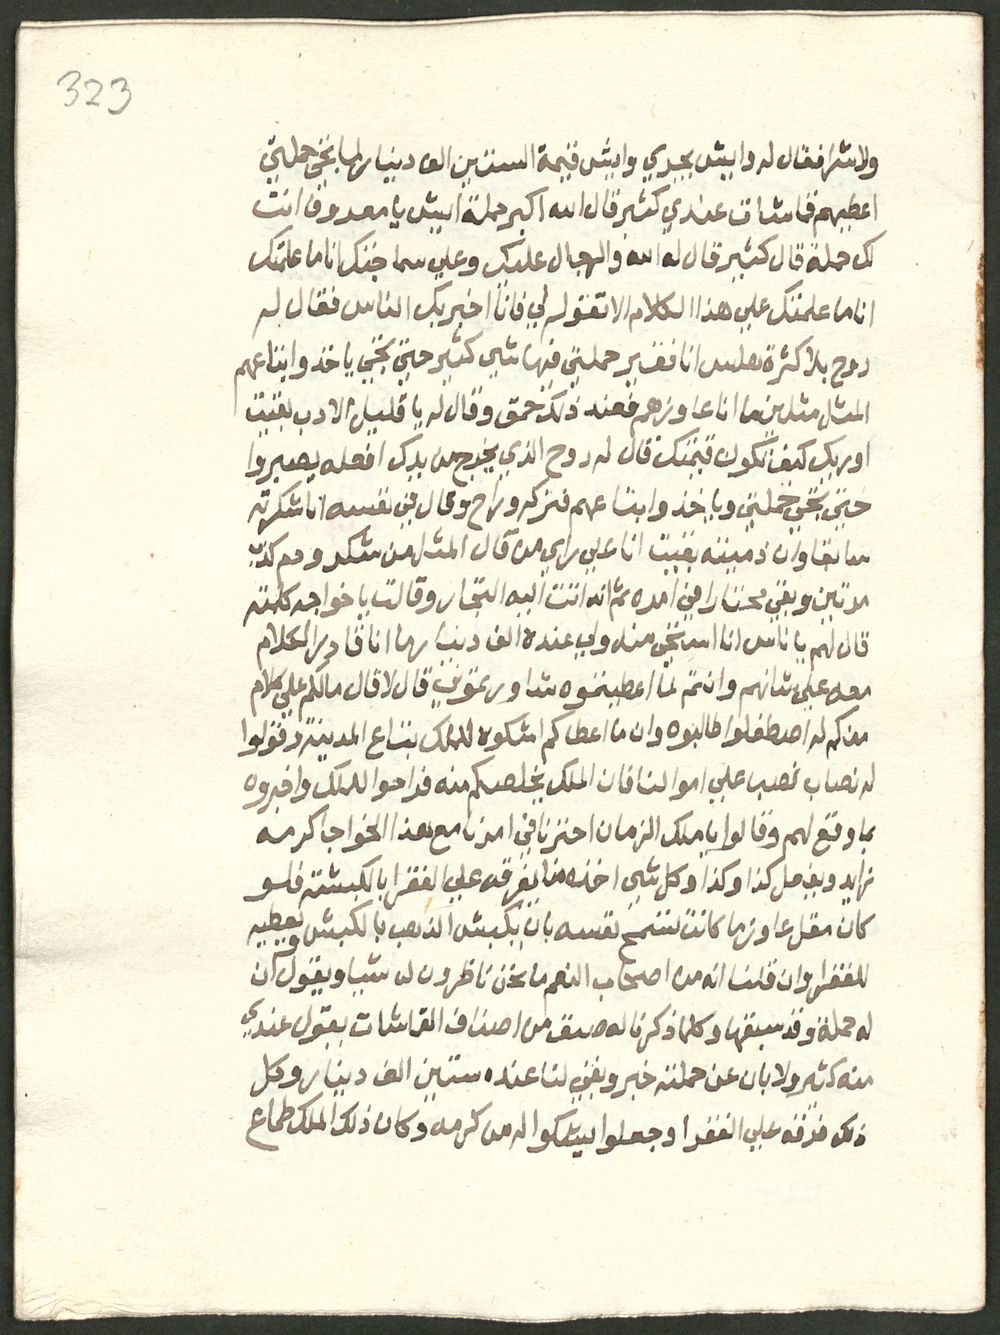 323
ولا شرا فقال له وايش يجري وايش قيمة الستين الف دينار لما تجي حملتي
اعطيهم قماشات عندي كثير قال الله اكبر حملة ايش يا معروف انت
لك حملة قال كثير قال له الله والرجال عليك وعلي سماجتك انا ما علمتك
انا ما علمتك علي هذا الكلام الا تقوله لي فانا اخبر بك الناس فقال له
روح بلا كثرة انا فقير حملتي فيها شي كثير حتي تجي ياخذوا بتاعهم
المثل مثلين ما انا عاوزهم فعند ذلك حمق وقال له يا قليل الادب بقيت
اوريك كيف تكون قيمتك قال له روح الذي يخرج من يدك افعله يصيروا
حتي تجي حملتي وياخذوا بتاعهم فتركه وراح وقال في نفسه انا شكرته
سابقا وان ذميته بقيت انا علي راي من قال المثل من شكر وذم كذب
مرتين وبقي محتارا في امره ثم انه اتت اليه التجار وقالت يا خواجه كلمته
قال لهم يا ناس انا استحي منه ولي عنده الف دينار ما انا قادر الكلام
معه علي شانهم وانتم لما اعطيتوه شاورتوني قال لا قال مالكم علي كلام
منكم له اصطفلوا طالبوه وان ما اعطاكم اشكوه للملك بتاع المدينة وقولوا
له نصاب نصب علي اموالنا فان الملك يخلصكم منه فراحوا للملك واخبروه
بما وقع لهم وقالوا يا ملك الزمان احترنا في امرنا مع هذا الخواجا كرمه
زايد ويفعل كذا وكذا وكل شي اخذه منا يفرقه علي الفقرا بالكبشة فلو
كان مقل عاوز ما كانت تسمح نفسه بان يكبش الذهب بالكبش ويعطيه
للفقرا وان قلنا انه من اصحاب النعم ما نحن ناظرون له شيا ويقول ان
له حملة وقد سبقها وكلما ذكرنا له صنف من اصناف القماشات يقول عندي
منه كثير ولا بان عن حملته خبر وبقي لنا عنده ستين الف دينار وكل
ذلك فرقه علي الفقرا وجعلوا يشكوا له من كرمه وكان ذلك الملك طماع